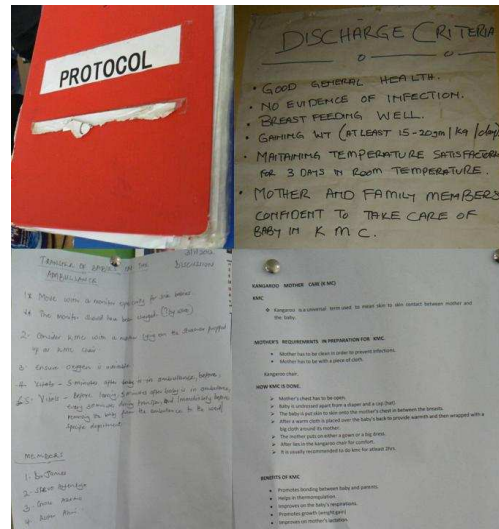 PROTOCOL
DISCHARGE CRITERIA
GOOD GENERAL HEALTH.
NO EVIDENCE OF INFECTION.
BREAST FEEDING WELL.
GAINING WT (AT LEAST 15-20gm/Kg/day)
MAITAINING TEMPERATURE SATISFACTORI
FOR 3 DAYS IN ROOM TEMPERATURE.
MOTHER AND FAMILY MEMBERS
CONFIDENT TO TAKE CARE OF
BABY IN K M C.
TRANSFER OF BABIES IN THE
AMBULANCE
DISCUSSION
Move with a monitor especially for sick babies
The monitor should have been charged
2- Consider KMC with a mother lying on the
3- Ensure oxygen is available
4- Vitals - 5 minutes after baby is in ambulance, before,
5- Vitals - Before leaving, 5 minutes after baby is in ambulance,
every 30 minutes during transport, and immediately before
removing the baby from the ambulance to the
specific department.
MEMBERS
1. Dr James
2.
3.
4.
KANGAROO MOTHER CARE (K MC)
KMC
Kangaroo is a universal term used to mean skin to skin contact between mother and
the baby.
MOTHER'S REQUIREMENTS IN PREPARATION FOR KMC.
Mother has to be clean in order to prevent infections.
Mother has to be with a piece of cloth.
Kangaroo chair.
HOW KMC IS DONE.
Mother's chest has to be open.
Baby is undressed apart from a diaper and a cap (hat).
The baby is put skin to skin onto the mother's chest in between the breasts.
After a warm cloth is placed over the baby's back to provide warmth and then wrapped with a
big cloth around its mother.
The mother puts on either a gown or a big dress.
After lies in the kangaroo chair for comfort.
It is usually recommended to do kmc for atleast 2hrs.
BENEFITS OF KMC
Promotes bonding between baby and parents.
Helps in thermoregulation.
Improves on the baby's respirations.
Promotes growth (weight gain)
Improves on mother's lactation.